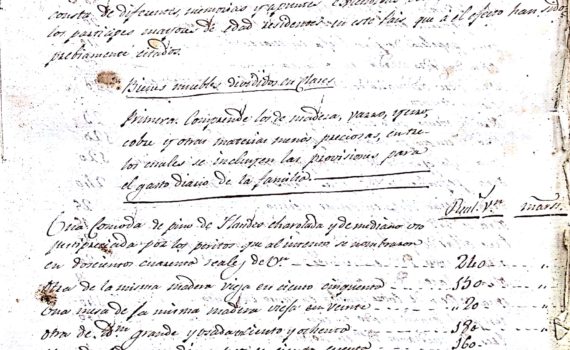 consta de discuentos, memorias y apuntes
los participes mayores de edad residentes en este Pais, que á el efecto han sido
prebiamente citados.
Bienes muebles divididos en Clases.
Primero. Comprende los de madera, varro, yerro,
cobre y otras materias menos preciosas, entre
los cuales se incluyen las provisiones para
el gasto diario de la familia.
Real.s v.on mara.s
Una Comoda de pino de Flandes charolada y de mediano uso
justipreciada por los peritos que al intento se nombraron
en doscientos cuarenta reales de v.on 240 "
Otra de la misma madera vieja en ciento cinquenta 150 "
Una mesa de la misma madera vieja en veinte "20 "
otra de Ydm grande y usada ciento y ochenta 180 "
160 "